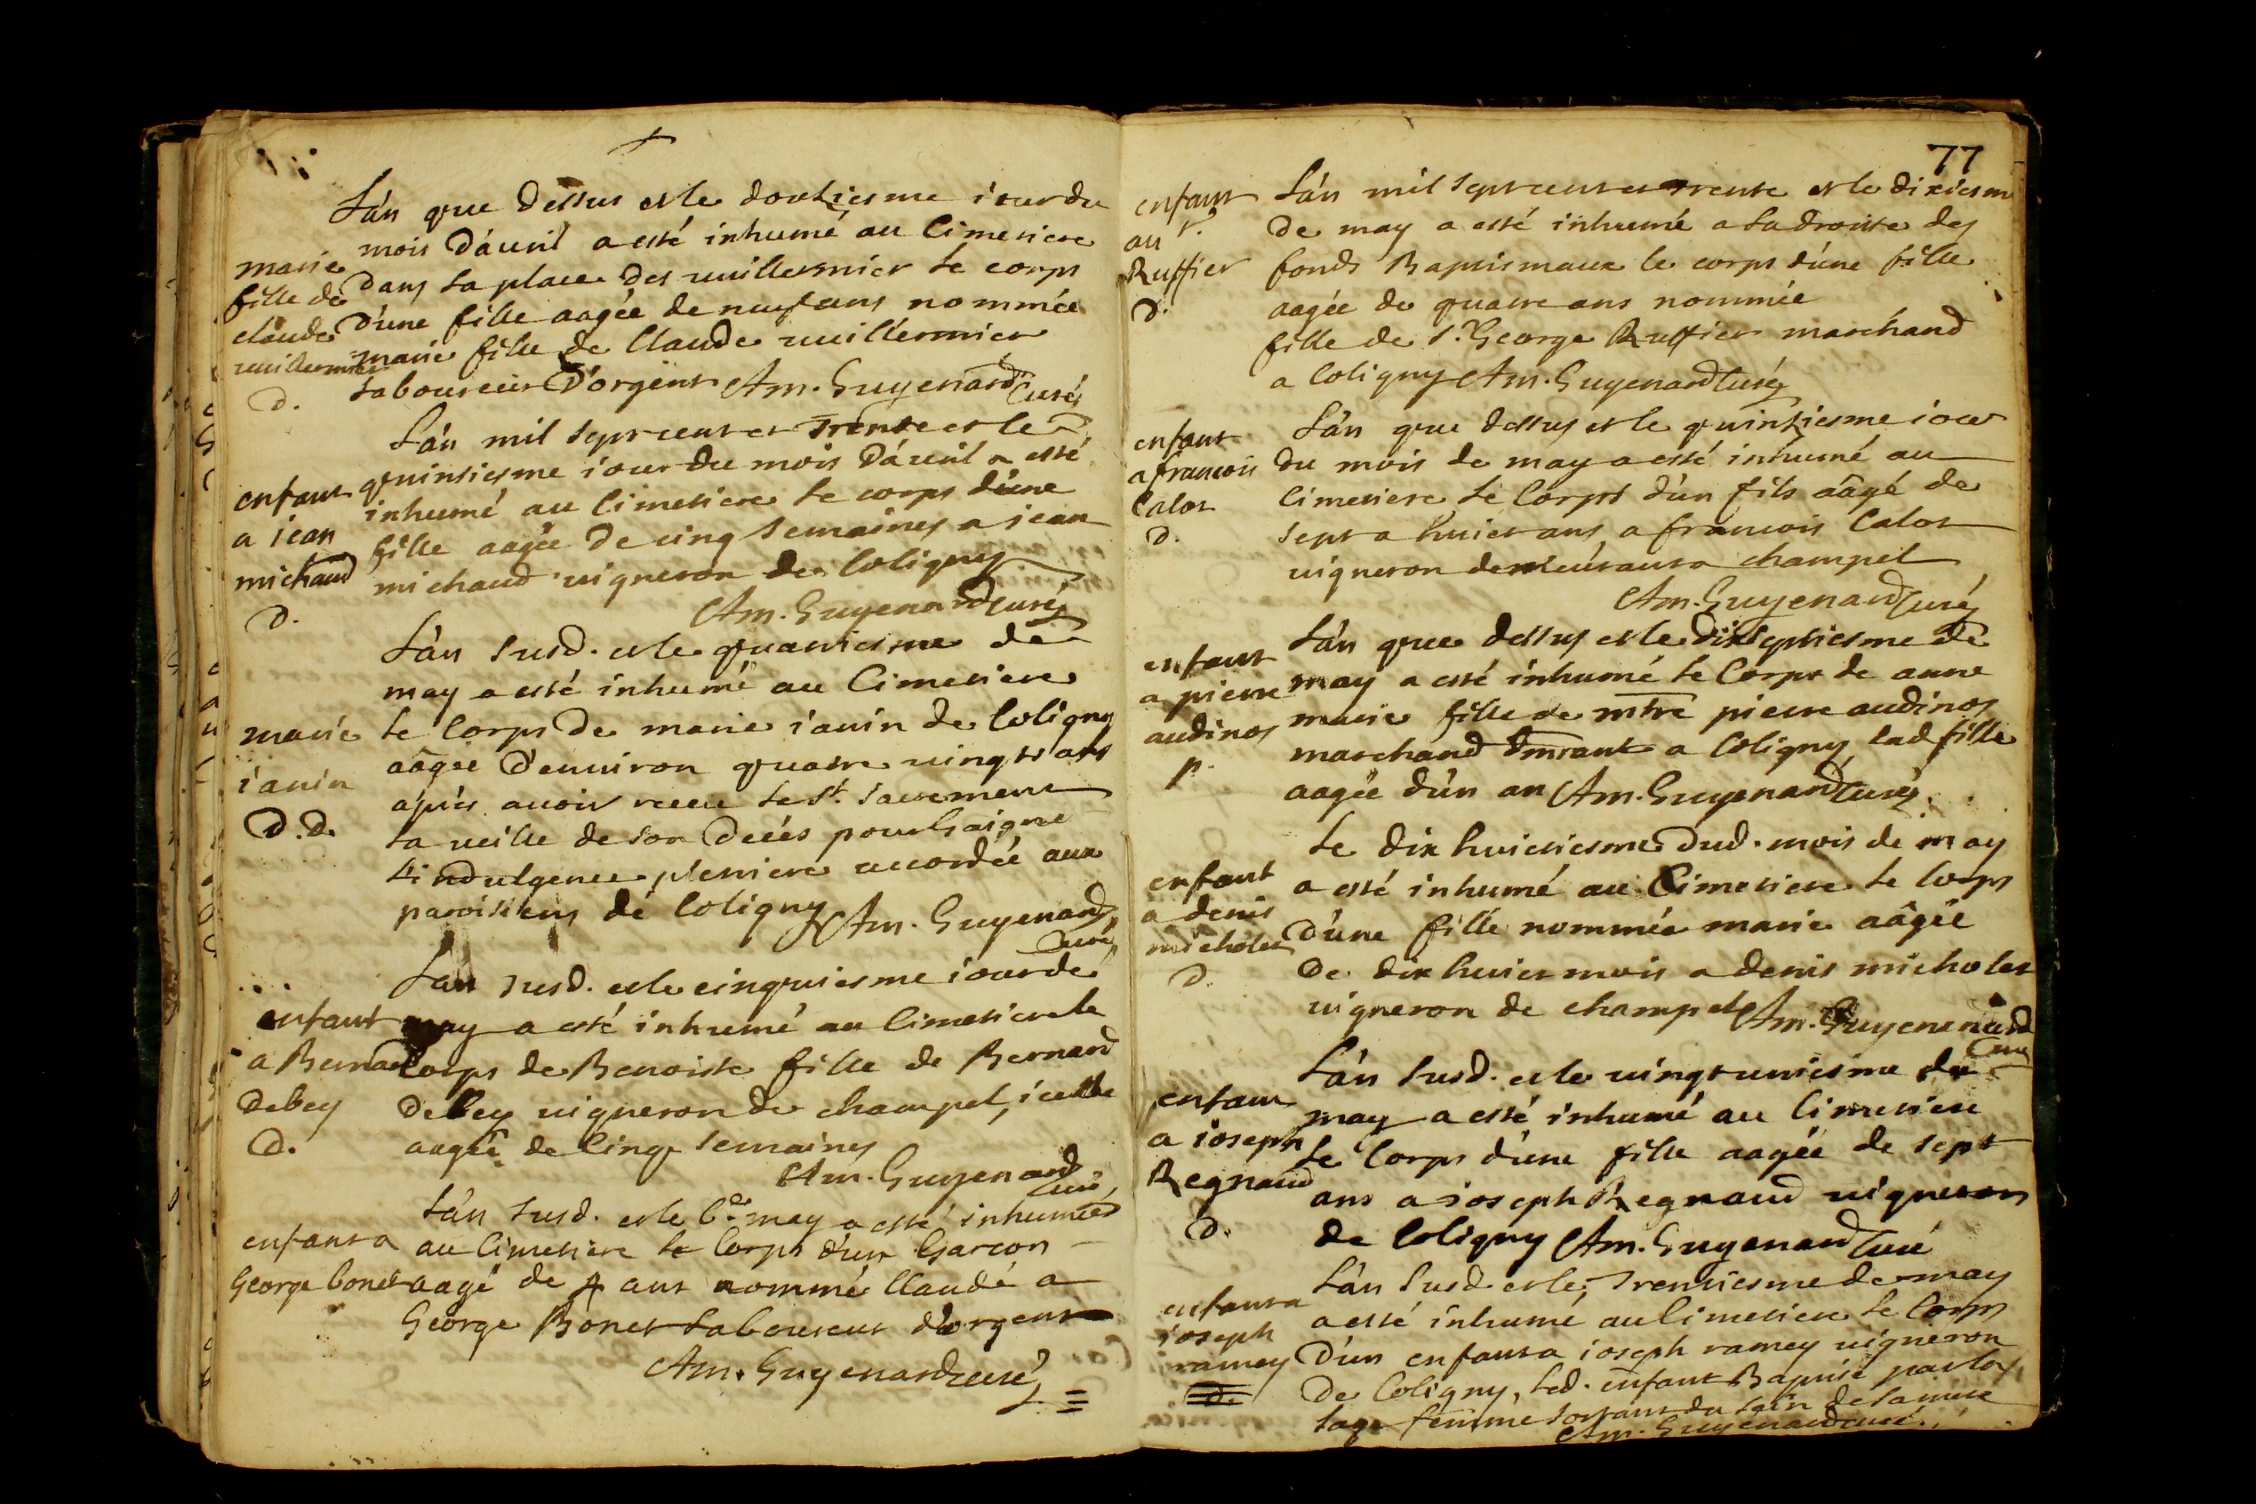 L'an que dessus et le doutziesme iour du
mois d'auril a esté inhumé au Cimetiere
dans la place des uuillermier le corps
d'une fille aagée de neuf ans nommée
marie fille de Claude uuillermier
laboureur D'orgent Am. Guyenard Curé
marie
fille de
claude
uuillermier
D.
L'an mil sept cent et trente et le
quinsiesme iour du mois D'auril a esté
inhumé au Cimetiere le corps d'une
fille aagée de cinq semaines a jean
michaud uigneron de Coligny
Am. Guyenard Curé
enfant
a jean
michaud
D.
L'an susd. et le quatriesme de
may a esté inhumé au Cimetiere
le Corps de marie ianin de Coligny
aâgée d'enuiron quatre uingts ans
apres auoir receu le st. sacrement
la ueille de son decés pour Gaigne
L'indulgence pleniere accordée aux
paroissiens de Coligny Am. Guyenard
Curé
marie
ianin
D.D.
L'an susd. et le cinquiesme iour de
may a esté inhumé au Cimetiere le
Corps de Benoiste fille de Bernard
Debey uigneron de champel, icelle
aagée de Cinq semaines
Am. Guyenard
Curé
enfant
a Bernard
Debey
D.
L'an susd. et le 6e. may a esté inhumé
au Cimetiere le Corps d'un Garcon
aagé de 4 ans nommé Claude a
George Bonet laboureur d'orgent
Am. Guyenard curé
enfant a
George bonet
77
L'an mil sept cent et trente et le dixiesme
de may a esté inhumé a la droite des
fonds Baptismaux le corps d'une fille
aagée de quatre ans nommée
fille de sr. George Ruffier marchand
a Coligny Am. Guyenard Curé
enfant
au sr.
Ruffier
D.
L'an que dessus et le quintziesme iour
du mois de may a esté inhumé au
Cimetiere le Corps d'un fils aâgé de
sept a huict ans a francois Calot
uigneron demeurant a champel
Am. Guyenard Curé
enfant
a francois
Calot
D.
L'an que dessus et le dixseptiesme de
may a esté inhumé le Corps de anne
marie fille de mtre pierre audinos
marchand dmrant a Coligny, lad fille
aagée d'un an Am. Guyenard Curé
enfant
a pierre
audinos
p.
Le dix huictiesme dud. mois de may
a esté inhumé au Cimetiere le Corps
d'une fille nommée marie aâgée
de dix huict mois a denis micholet
uigneron de champel Am. Guyenenard
Curé
enfant
a denis
micholet
D.
L'an susd. et le uingt uniesme de
may a esté inhumé au Cimetiere
le Corps d'une fille aagée de sept
ans a joseph Regnaud uigneron
de Coligny Am. Guyenard Curé
enfant
a ioseph
Regnaud
D.
L'an susd et le trentiesme de may
a esté inhumé au Cimetiere le Corps
d'un enfant a ioseph ramey uigneron
de Coligny, led. enfant Baptisé par la
sage femme sortant du sain de sa mere
Am. Guyenard curé.
enfant a
ioseph
ramey
D.